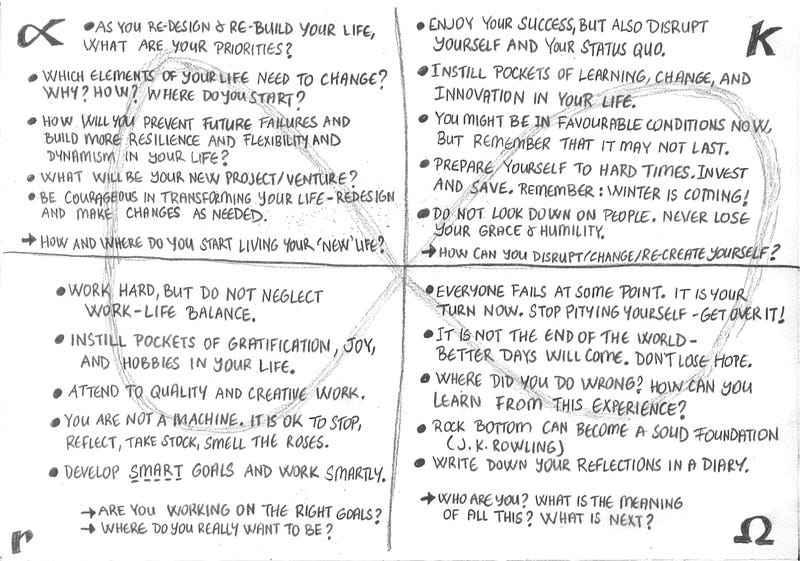 ∝
• AS YOU RE-DESIGN & RE-BUILD YOUR LIFE,
WHAT ARE YOUR PRIORITIES?
• WHICH ELEMENTS OF YOUR LIFE NEED TO CHANGE?
WHY? HOW? WHERE DO YOU START?
• HOW WILL YOU PREVENT FUTURE FAILURES AND
BUILD MORE RESILIENCE AND FLEXIBILITY AND
DYNAMISM IN YOUR LIFE?
• WHAT WILL BE YOUR NEW PROJECT/VENTURE?
• BE COURAGEOUS IN TRANSFORMING YOUR LIFE - REDESIGN
AND MAKE CHANGES AS NEEDED.
→ HOW AND WHERE DO YOU START LIVING YOUR 'NEW' LIFE?
K
• ENJOY YOUR SUCCESS, BUT ALSO DISRUPT
YOURSELF AND YOUR STATUS QUO.
• INSTILL POCKETS OF LEARNING, CHANGE, AND
INNOVATION IN YOUR LIFE.
• YOU MIGHT BE IN FAVOURABLE CONDITIONS NOW,
BUT REMEMBER THAT IT MAY NOT LAST.
• PREPARE YOURSELF TO HARD TIMES. INVEST
AND SAVE. REMEMBER: WINTER IS COMING!
• DO NOT LOOK DOWN ON PEOPLE. NEVER LOSE
YOUR GRACE & HUMILITY.
→ HOW CAN YOU DISRUPT/CHANGE/RE-CREATE YOURSELF?
• WORK HARD, BUT DO NOT NEGLECT
WORK-LIFE BALANCE.
• INSTILL POCKETS OF GRATIFICATION, JOY,
AND HOBBIES IN YOUR LIFE.
• ATTEND TO QUALITY AND CREATIVE WORK.
• YOU ARE NOT A MACHINE. IT IS OK TO STOP,
REFLECT, TAKE STOCK, SMELL THE ROSES.
• DEVELOP SMART GOALS AND WORK SMARTLY.
→ ARE YOU WORKING ON THE RIGHT GOALS?
→ WHERE DO YOU REALLY WANT TO BE?
r
• EVERYONE FAILS AT SOME POINT. IT IS YOUR
TURN NOW. STOP PITYING YOURSELF - GET OVER IT!
• IT IS NOT THE END OF THE WORLD -
BETTER DAYS WILL COME. DON'T LOSE HOPE.
• WHERE DID YOU DO WRONG? HOW CAN YOU
LEARN FROM THIS EXPERIENCE?
• ROCK BOTTOM CAN BECOME A SOLID FOUNDATION
(J.K. ROWLING)
• WRITE DOWN YOUR REFLECTIONS IN A DIARY.
→ WHO ARE YOU? WHAT IS THE MEANING
OF ALL THIS? WHAT IS NEXT?
Ω